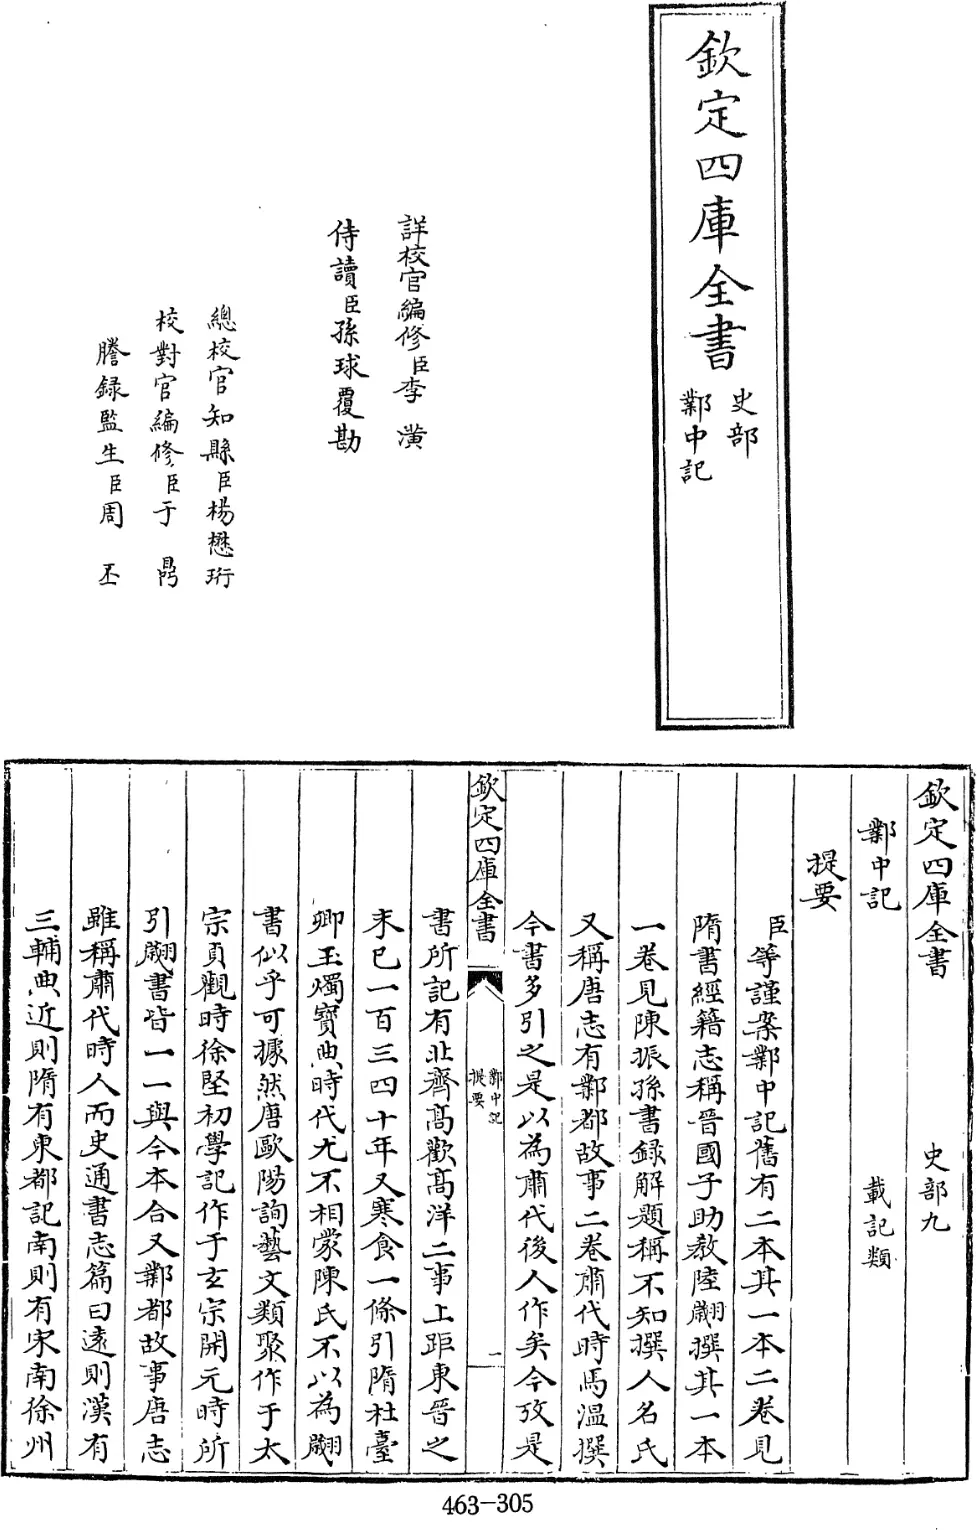 欽定四庫全書
史部
鄴中記
詳校官編修臣李潢
侍讀臣孫球覆勘
總校官知縣臣楊懋珩
校對官編修臣于鼎
謄録監生臣周丕
欽定四庫全書 史部九
鄴中記 載記類
提要
臣等謹案鄴中記舊有二本其一本二卷見
隋書經籍志稱晉國子助教陸翽撰其一本
一卷見陳振孫書録解題稱不知撰人名氏
又稱唐志有鄴都故事二卷肅代時馬温撰
今書多引之是以為肅代後人作矣今攷是
欽定四庫全書
鄴中記
提要
一
書所記有北齊高歡高洋二事上距東晉之
末已一百三四十年又寒食一條引隋杜臺
卿玉燭寶典時代尤不相蒙陳氏不以為翽
書似乎可據然唐歐陽詢藝文類聚作于太
宗貞觀時徐堅初學記作于玄宗開元時所
引翽書皆一一與今本合又鄴都故事唐志
雖稱肅代時人而史通書志篇曰遠則漢有
三輔典近則隋有東都記南則有宋南徐州
463-305